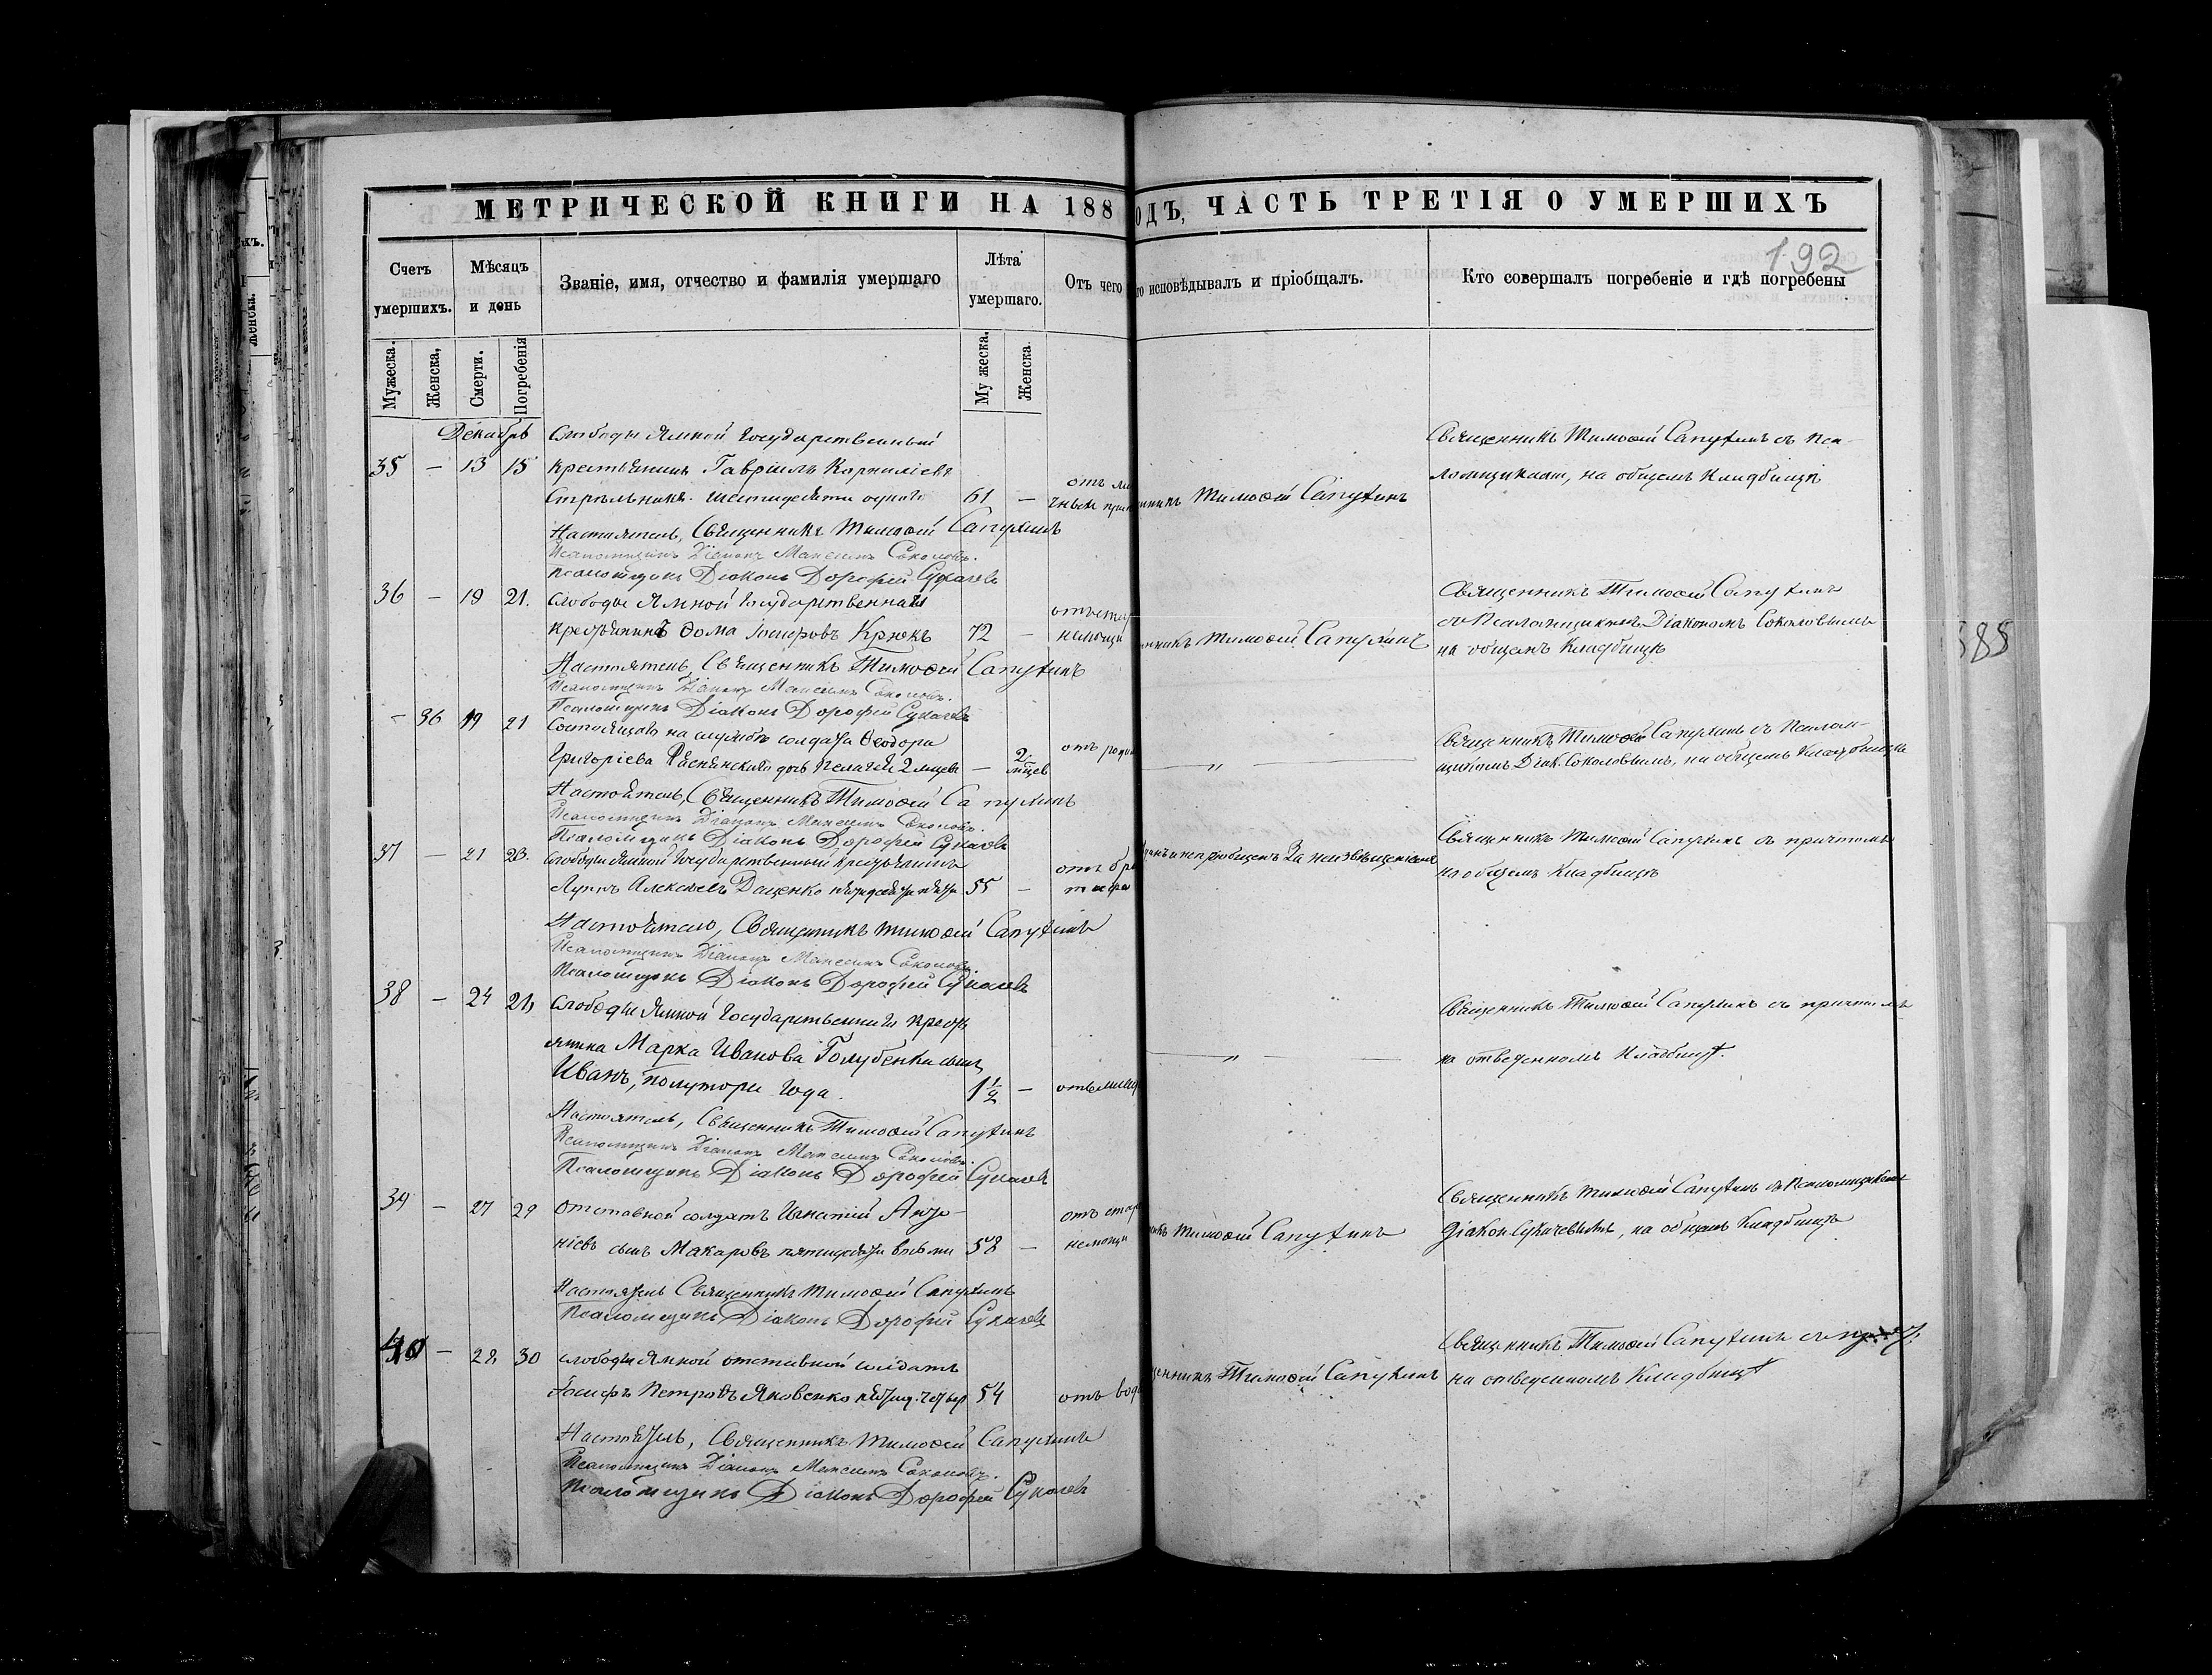 МЕТРИЧЕСКОЙ КНИГИ НА 188 ОДЪ, ЧАСТЬ ТРЕТІЯ О УМЕРШИХЪ
192
Счетъ умершихъ.
Мѣсяцъ и день
Званіе, имя, отчество и фамилія умершаго
Лѣта умершаго.
Отъ чего
то исповѣдывалъ и пріобщалъ.
Кто совершалъ погребеніе и гдѣ погребены
Мужеска.
Женска,
Смерти.
Погребенія
Му жеска.
Женска.
Декабрь
Слободы Ямной Государственный
35 – 13 15 крестьянинъ Гавріилъ Корниліевъ
Стрѣльникъ. шестидесяти одного 61 –
отъ
Тимоѳей Сапухинъ
Священникъ Тимоѳей Сапухинъ съ Пса-
ломщикомъ, на общемъ кладбищѣ
Настоятель, Священникъ Тимоѳей Сапухинъ
Псаломщикъ Діаконъ Максимъ Соколовъ.
Псаломщикъ Діаконъ Дорофей Сукачевъ
36 – 19 21. Слободы Ямной Государственный
крестьянинъ Ѳома Іосифовъ Крюкъ 72 –
немощи
Тимоѳей Сапухинъ
Священникъ Тимоѳей Сапухинъ
съ Псаломщикомъ Діакономъ Соколовымъ
на общемъ кладбищѣ
Настоятель, Священникъ Тимоѳей Сапухинъ
Псаломщикъ Діаконъ Максимъ Соколовъ.
Псаломщикъ Діаконъ Дорофей Сукачевъ
– 36 19 21 Состоящаго на службѣ солдата Ѳеодора
Григоріева дочь Пелагея 2 мѣсяцевъ – 2 мѣсяцев
отъ роди
— „ —
Священникъ Тимоѳей Сапухинъ съ Псалом-
щикомъ Діак. Соколовымъ, на общемъ кладбищѣ
Настоятель, Священникъ Тимоѳей Сапухинъ
Псаломщикъ Діаконъ Максимъ Соколовъ.
Псаломщикъ Діаконъ Дорофей Сукачевъ
37 – 21 23. Слободы Ямной Государственный крестьянинъ
Алексѣевъ Даценко пятидесяти пяти 55 –
отъ
тифа
и непріобщенъ за неизвѣщеніемъ
Священникъ Тимоѳей Сапухинъ съ причтомъ
на общемъ кладбищѣ
Настоятель, Священникъ Тимоѳей Сапухинъ
Псаломщикъ Діаконъ Максимъ Соколовъ
Псаломщикъ Діаконъ Дорофей Сукачевъ
38 – 24 Слободы Ямной Государственнаго кресть
янина Марка Иванова Голубенка сынъ
Иванъ, полутора года. 1½ –
— „ —
Священникъ Тимоѳей Сапухинъ съ причтомъ
на отведенномъ кладбищѣ.
Настоятель, Священникъ Тимоѳей Сапухинъ
Псаломщикъ Діаконъ Максимъ Соколовъ.
Псаломщикъ Діаконъ Дорофей Сукачевъ
39 – 27 29 Отставной солдатъ Игнатій Анто-
ніевъ сынъ Макаровъ пятидесяти восьми 58 –
отъ стар
немощи
Тимоѳей Сапухинъ
Священникъ Тимоѳей Сапухинъ съ Псаломщикомъ
Діакон Сукачевымъ, на общемъ кладбищѣ
Настоятель Священникъ Тимоѳей Сапухинъ
Псаломщикъ Діаконъ Дорофей Сукачевъ
40 – 28, 30 Слободы Ямной отставной солдатъ
Іосифъ Петровъ Яковенко 54
отъ вод
Тимоѳей Сапухинъ
Священникъ Тимоѳей Сапухинъ
на отведенномъ кладбищѣ
Настоятель, Священникъ Тимоѳей Сапухинъ
Псаломщикъ Діаконъ Максимъ Соколовъ.
Псаломщикъ Діаконъ Дорофей Сукачевъ
385